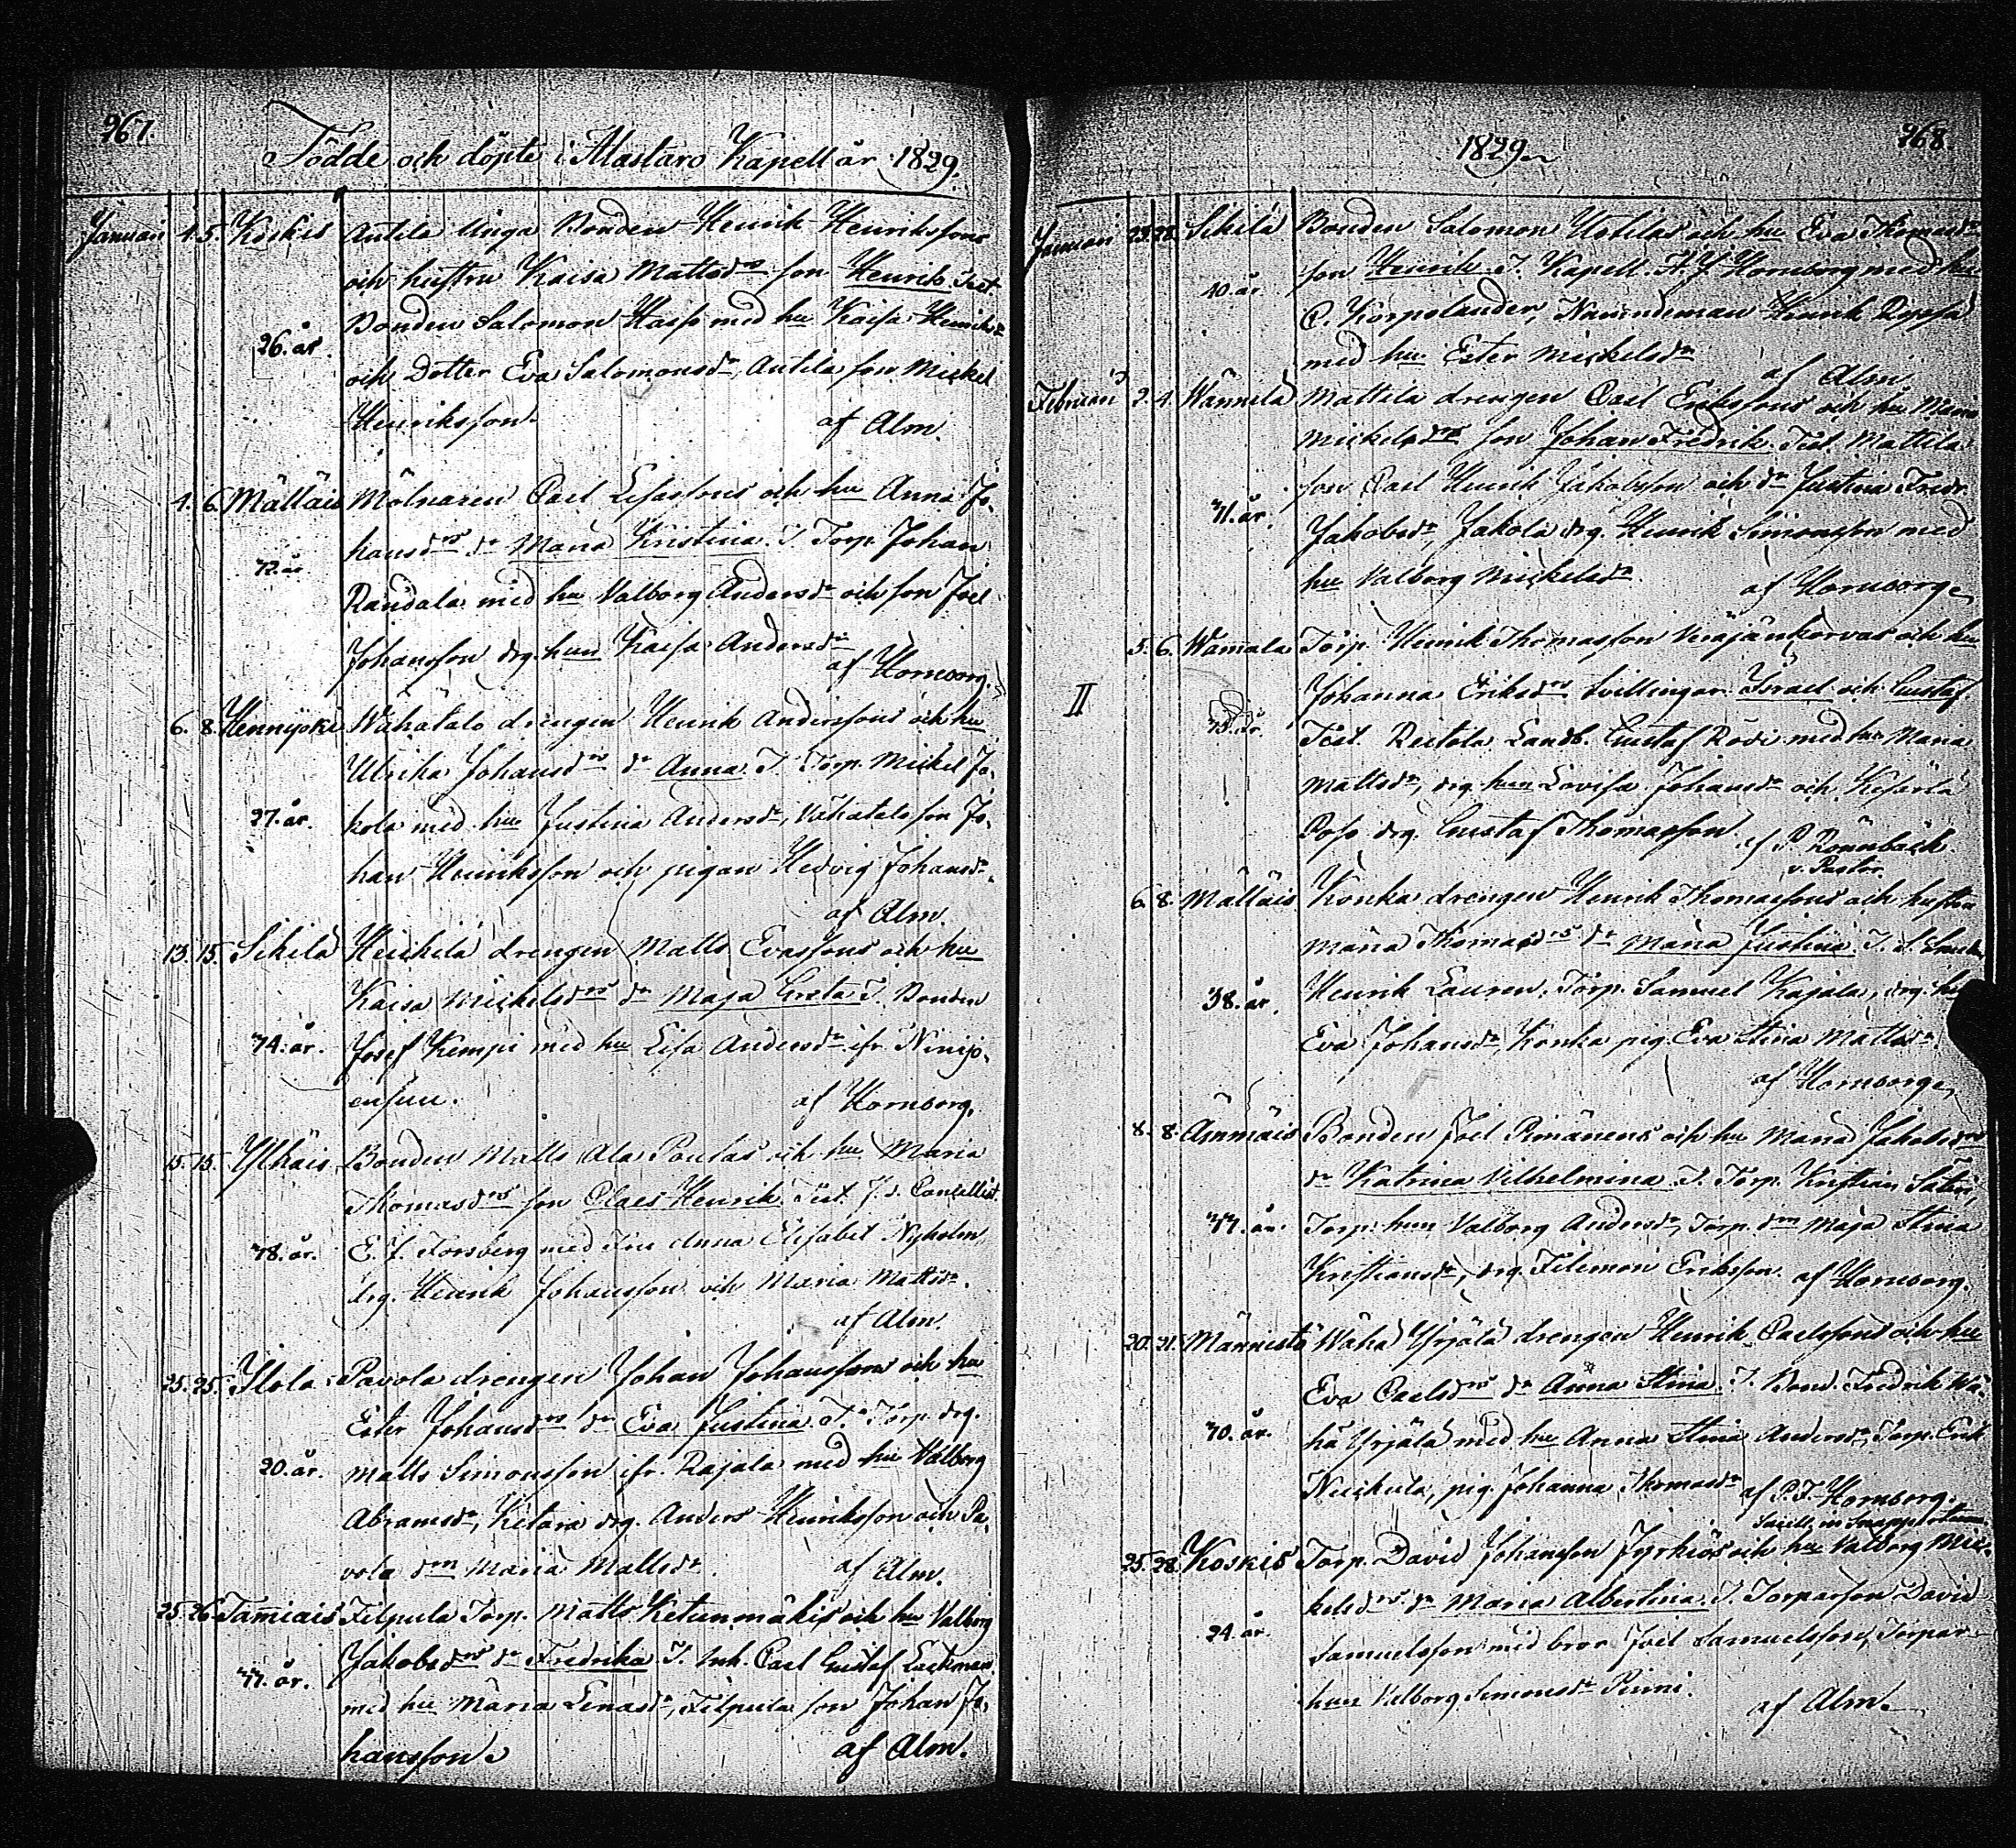 967.
Födde och döpte i Alastaro Kapell år 1829.
Januari 4. 5. Koskis Antila Unga Bonden Henrik Henrikssons
och hustru Kaisa Mattsdrs son Henrik. Test.
26. år. Bonden Salomon Hasso med hu Kaisa Henriksdr
och Dotter Eva Salomonsdr, Antila son Mickel
Henriksson. af Alm.
4. 6. Mälläis Mölnaren Carl Esaiasons och hu Anna Jo-
hansdrs dr Maria Kristina. T. Torp. Johan
42. år Randala med hu Valborg Andersdr och son Joel
Johansson drg. hun Kaisa Andersdr
af Hornborg.
6. 8. Hennijoki Wähätalo drengen Henrik Anderssons och hu
Ulrika Johansdrs dr Anna. T. Torp. Mickel Jo-
27. år. kola med hu Justina Andersdr, Vähätalo son Jo-
han Henriksson och pigan Hedvig Johansdr.
af Alm.
13. 15. Sikilä Heickilä drengen Matts Evassons och hu
Kaisa Mickelsdrs dr Maja Greta T. Bonden
44. år. Josef Kempi med hu Lisa Andersdr ifr. Ninijo-
ensuu. af Hornborg.
15. 15. Ylhäis Bonden Matts Ala Poulas och hu Maria
Thomasdrs son Claes Henrik. Test. J. d. Cancellist.
48. år. E. J. Forsberg med Fru Anna Elisabet Nyholm
drg. Henrik Johansson och Maria Mattsdr.
af Alm.
25. 25. Ilola Pavola drengen Johan Johanssons och hu
Ester Johansdrs dr Eva Justina. T. Torp. drg.
20. år. Matts Simonsson ifr. Rajala med hu Valborg
Abramsdr, Ketara drg. Anders Henriksson och Pa-
vola drn Maria Mattsdr. af Alm.
25. 26. Tamiais Filpula Torp. Matts Ketunmäkis och hu Valborg
Jakobsdrs dr Fredrika T. Inh. Carl Gustaf Lackman
44. år. med hu Maria Lenasdr, Filpula son Johan Jo-
hansson. af Alm.
968.
1829.
Januari 23. 28. Sikilä Bonden Salomon Uotilas och hu Eva Thomasdrs
son Henrik. T. Kapell. A. J. Hornborg med hu
40. år. C. Korpolander, Nämndeman Henrik
med hu Ester Mickelsdr
af Alm.
Februari 2. 4. Wännilä Mattila drengen Carl Erikssons och hu Maria
Mickelsdrs son Johan Fredrik. Test. Mattila
son Carl Henrik Jakobsson och dr Justina Fredr.
41. år. Jakobsdr, Jakola drg. Henrik Simonsson med
hu Valborg Mickelsdr. af Hornborg.
5. 6. Wammala Torp. Henrik Thomasson och hu
II Johanna Eriksdrs tvillingar Israel och Gustaf
Test. Reitola Landb. Gustaf Rosi med hu Maria
Mattsdr, drg. hun Lovisa Johansdr och
drg. Gustaf Thomasson. af P. Rönnbäck
v. Pastor.
6. 8. Mälläis Konka drengen Henrik Thomassons och hustru
Maria Thomasdrs dr Maria Justina. T.
38. år. Henrik Lauren, Torp. Samuel Kajala, drg. hu
Eva Johansdr, Konka pig. Eva Stina Mattsdr.
af Hornborg.
8. 8. Ämmäis Bonden Joel Pimänens och hu Maria Jakobsdrs
dr Katrina Vilhelmina. T. Torp. Kristian
44. år. Torp. hun Valborg Andersdr, Torp. drn Maja Stina
Kristiansdr, drg. Filemon Eriksson. af Hornborg.
20. 21. Männistö Wähä Yrjälä drengen Henrik Carlssons och hu
Eva Carlsdrs dr Anna Stina. T. Bond. Fredrik Wä-
40. år. hä Yrjälä med hu Anna Stina Andersdr, Torp. Erik
Nuckula, pig. Johanna Thomasdr af P. F. Hornborg.
25. 28. Koskis Torp. David Johansson Jyrkiös och hu Valborg Mic-
kelsdrs dr Maria Albertina. T. Torparson David
24. år. Samuelsson med bror Joel Samuelsson, Torpar-
hun Valborg Simonsdr Pinni. af Alm.